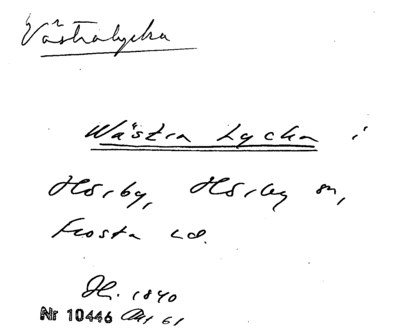 Västralycka
Wästra Lycka i
Hörby, Hörby sn,
Frosta hd.
H. 1840
Nr 10446 Akt 61